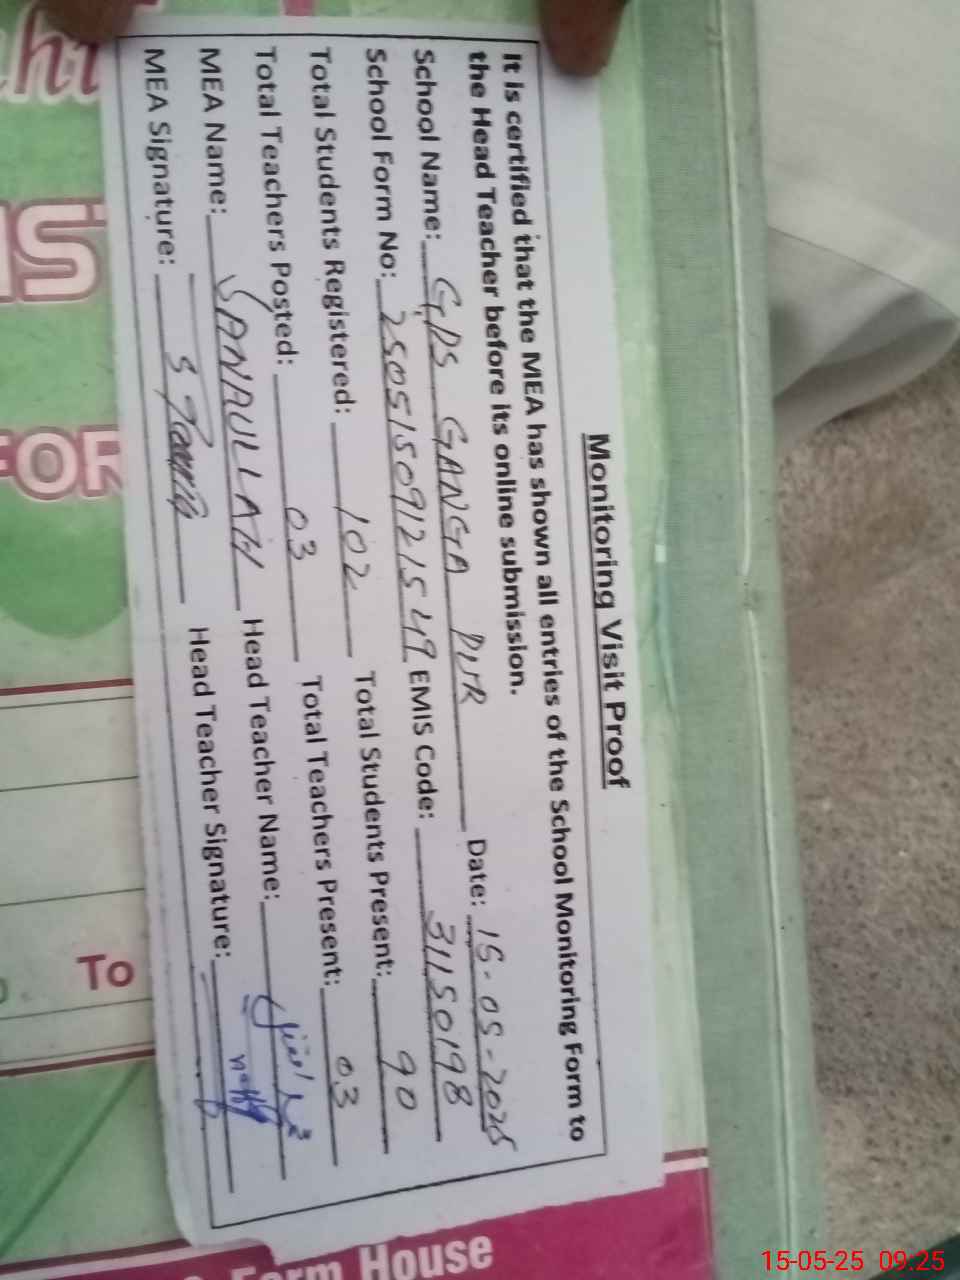 Monitoring Visit Proof
It is certified that the MEA has shown all entries of the School Monitoring Form to
the Head Teacher before its online submission.
School Name: GPS GANGA PUR Date: 15-05-2025
School Form No: 25051509121549 EMIS Code: 31150198
Total Students Registered: 102 Total Students Present: 90
Total Teachers Posted: 03 Total Teachers Present: 03
MEA Name: SANAULLAH Head Teacher Name:
MEA Signature: Head Teacher Signature:
To
FOR
Farm House
15-05-25 09:25